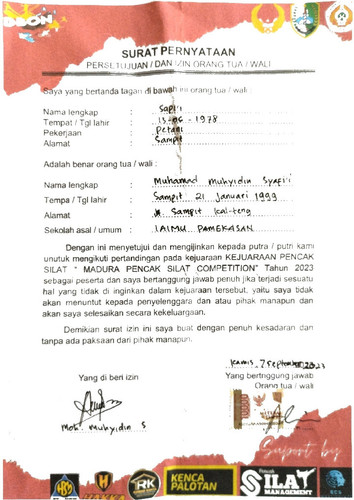 SURAT PERNYATAAN
PERSETUJUAN / DAN IZIN ORANG TUA / WALI
Saya yang bertanda tagan di bawah ini orang tua / wali :
Nama lengkap : Sapi'i
Tempat / Tgl lahir : 13-06-1978
Pekerjaan : Petani
Alamat : Sampit
Adalah benar orang tua / wali :
Nama lengkap : Muhamad Muhyidin Syafi'i
Tempa / Tgl lahir : Sampit 21 Januari 1999
Alamat : Sampit Kal-teng
Sekolah asal / umum : IAIMU PAMEKASAN
Dengan ini menyetujui dan mengijinkan kepada putra / putri kami
unutuk mengikuti pertandingan pada kejuaraan KEJUARAAN PENCAK
SILAT " MADURA PENCAK SILAT COMPETITION" Tahun 2023
sebagai peserta dan saya bertanggung jawab penuh jika terjadi sesuatu
hal yang tidak di inginkan dalam kejuaraan tersebut, yaitu saya tidak
akan menuntut kepada penyelenggara dan atau pihak manapun dan
akan saya selesaikan secara kekeluargaan.
Demikian surat izin ini saya buat dengan penuh kesadaran dan
tanpa ada paksaan dari pihak manapun.
Kamis, 7 September 2023
Yang di beri izin
Yang bertnggung jawab
Orang tua / wali
Moh. Muhyidin S
Suport by
RK
KENCA
PALOTAN
SILAT
MANAGEMENT